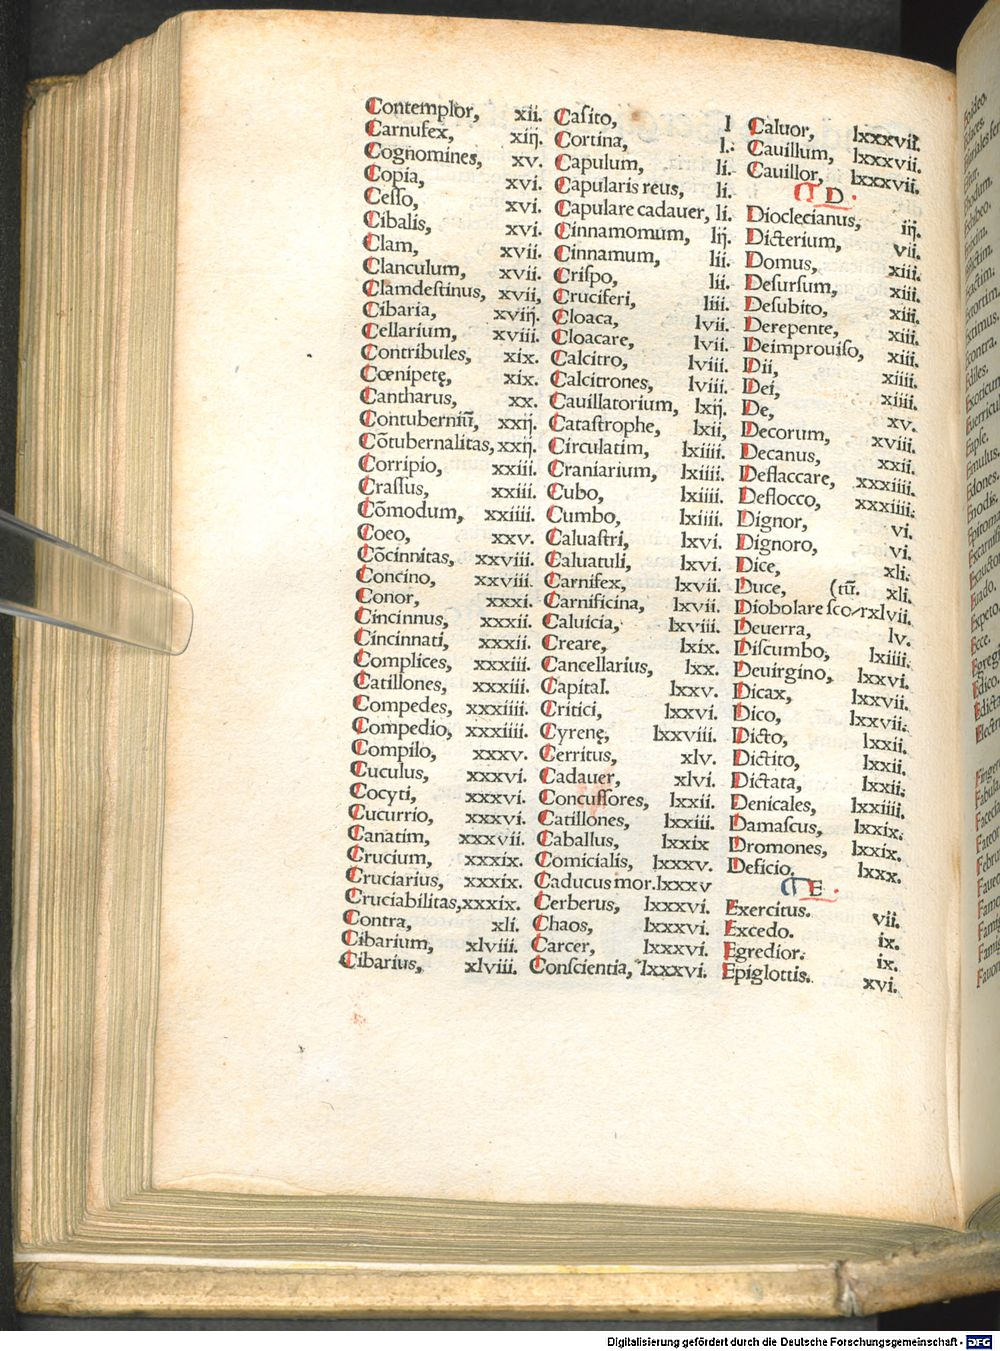 Contemplor, xii.
Carnufex, xiij.
Cognomines, xv.
Copia, xvi.
Cesso, xvi.
Cibalis, xvi.
Clam, xvii.
Clanculum, xvii.
Clamdestinus, xvii,
Cibaria, xviij.
Cellarium, xviii.
Contribules, xix.
Cœnipetę, xix.
Cantharus, xx.
Contuberniū, xxij.
Cōtubernalitas, xxij.
Corripio, xxiii.
Crassus, xxiii.
Cōmodum, xxiiii.
Coeo, xxv.
Cōcinnitas, xxviii.
Concino, xxviii.
Conor, xxxi.
Cincinnus, xxxii.
Cincinnati, xxxii.
Complices, xxxiii.
Catillones, xxxiii.
Compedes, xxxiiii.
Compedio, xxxiiii.
Compilo, xxxv.
Cuculus, xxxvi.
Cocyti, xxxvi.
Cucurrio, xxxvi.
Canatim, xxxvii.
Crucium, xxxix.
Cruciarius, xxxix.
Cruciabilitas, xxxix.
Contra, xli.
Cibarium, xlviii.
Cibarius, xlviii.
Casito, l
Cortina, l.
Capulum, li.
Capularis reus, li.
Capulare cadauer, li.
Cinnamomum, lij.
Cinnamum, lii.
Crispo, lii.
Cruciferi, liii.
Cloaca, lvii.
Cloacare, lvii.
Calcitro, lviii.
Calcitrones, lviii.
Cauillatorium, lxij.
Catastrophe, lxii,
Circulatim, lxiiii.
Craniarium, lxiiii.
Cubo, lxiiii.
Cumbo, lxiiii.
Caluastri, lxvi.
Caluatuli, lxvi.
Carnifex, lxvii.
Carnificina, lxvii.
Caluicia, lxviii.
Creare, lxix.
Cancellarius, lxx.
Capital. lxxv.
Critici, lxxvi.
Cyrenę, lxxviii.
Cerritus, xlv.
Cadauer, xlvi.
Concussores, lxxii.
Catillones, lxxiii.
Caballus, lxxix
Comicialis, lxxxv.
Caducus mor. lxxxv
Cerberus, lxxxvi.
Chaos, lxxxvi.
Carcer, lxxxvi.
Conscientia, lxxxvi.
Caluor, lxxxvii.
Cauillum, lxxxvii.
Cauillor, lxxxvii.
D.
Dioclecianus, iij.
Dicterium, vii.
Domus, xiii.
Desursum, xiii.
Desubito, xiii.
Derepente, xiii.
Deimprouiso, xiii.
Dii, xiiii.
Dei, xiiii.
De, xv.
Decorum, xviii.
Decanus, xxii.
Deflaccare, xxxiiii.
Deflocco, xxxiiii.
Dignor, vi.
Dignoro, vi.
Dice, xli.
Duce, (tū. xli.
Diobolare scor xlvii.
Deuerra, lv.
Discumbo, lxiiii.
Deuirgino, lxxvi.
Dicax, lxxvii.
Dico, lxxvii.
Dicto, lxxii.
Dictito, lxxii.
Dictata, lxxii.
Denicales, lxxiiii.
Damascus, lxxix.
Dromones, lxxix.
Deficio. lxxx.
E.
Exercitus. vii.
Excedo. ix.
Egredior. ix.
Epiglottis. xvi.
Digitalisierung gefördert durch die Deutsche Forschungsgemeinschaft - DFG